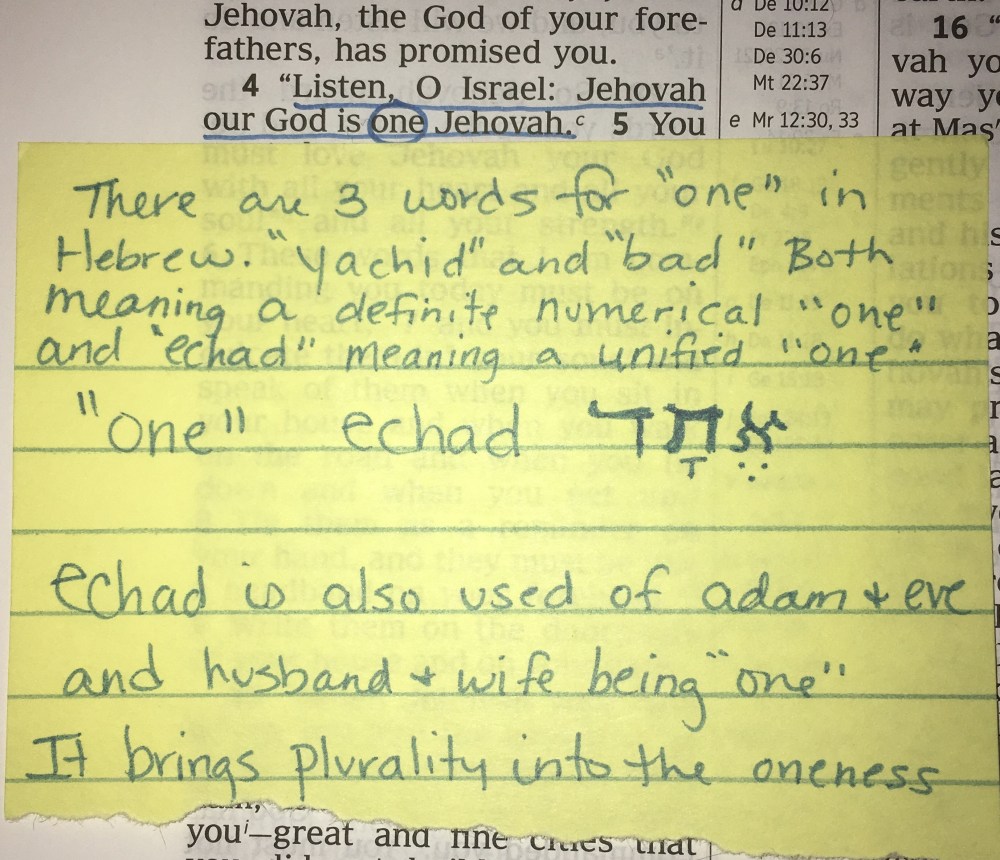 Jehovah, the God of your fore-
fathers, has promised you.
4 “Listen, O Israel: Jehovah
our God is one Jehovah.ᶜ 5 You
d De 10:12
De 11:13
De 30:6
Mt 22:37
e Mr 12:30, 33
16 “
vah yo
way y
at Mas
There are 3 words for "one" in
Hebrew. "yachid" and "bad" Both
meaning a definite numerical "one"
and "echad" meaning a unified "one"
"one" echad אֶתָד
echad is also used of adam + eve
and husband + wife being "one"
It brings plurality into the oneness
youⁱ—great and fine cities that